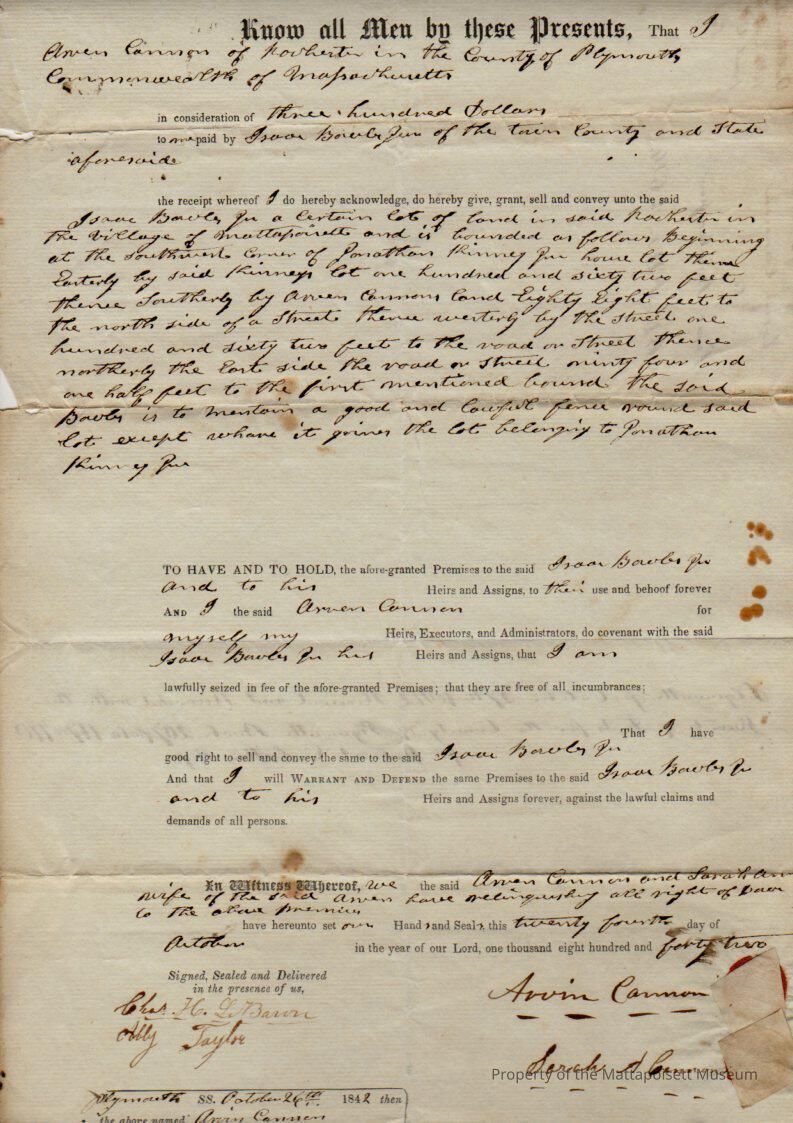 Know all Men by these Presents, That I
Arven Cannon of Rochester in the County of Plymouth
Commonwealth of Massachusetts
in consideration of three hundred Dollars
to me paid by Isaac Bowles Jur of the town County and State
aforesaide
the receipt whereof I do hereby acknowledge, do hereby give, grant, sell and convey unto the said
Isaac Bowles Jur a Certain lot of land in said Rochester in
the Village of Mattapoisette and is bounded as follows Beginning
at the Southwest Corner of Jonathan Kinney Jur house lot thence
Easterly by said Kinneys lot one hundred and sixty two feet
thence Southerly by Arven Cannons land Eighty Eight feet to
the north side of a Street thence westerly by the street one
hundred and sixty two feet to the road or street thence
northerly the East side the road or street ninty four and
one half feet to the first mentioned bound the said
Bowles is to mentain a good and lawfull fence round said
lot except whare it goines the lot belonging to Jonathan
Kinney Jur
TO HAVE AND TO HOLD, the afore-granted Premises to the said Isaac Bowles Jur
and to his Heirs and Assigns, to their use and behoof forever
AND I the said Arven Cannon for
myself my Heirs, Executors, and Administrators, do covenant with the said
Isaac Bowles Jur his Heirs and Assigns, that I am
lawfully seized in fee of the afore-granted Premises; that they are free of all incumbrances;
That I have
good right to sell and convey the same to the said Isaac Bowles Jur
And that I will WARRANT AND DEFEND the same Premises to the said Isaac Bowles Jr
and to his Heirs and Assigns forever, against the lawful claims and
demands of all persons.
In Witness Whereof, we the said Arven Cannon and Sarah Ann
wife of the said Arven have relinquishg all right of Dower
to the above premises
have hereunto set our Hands and Seals, this twenty fourth day of
October in the year of our Lord, one thousand eight hundred and forty two
Signed, Sealed and Delivered
in the presence of us,
Arvin Cannon
Chas. H. LeBaron
Abby Taylor
Sarah A
Property of the Mattapoisett Museum
Plymouth SS. October 26th 1842 then
the above named Arvin Cannon